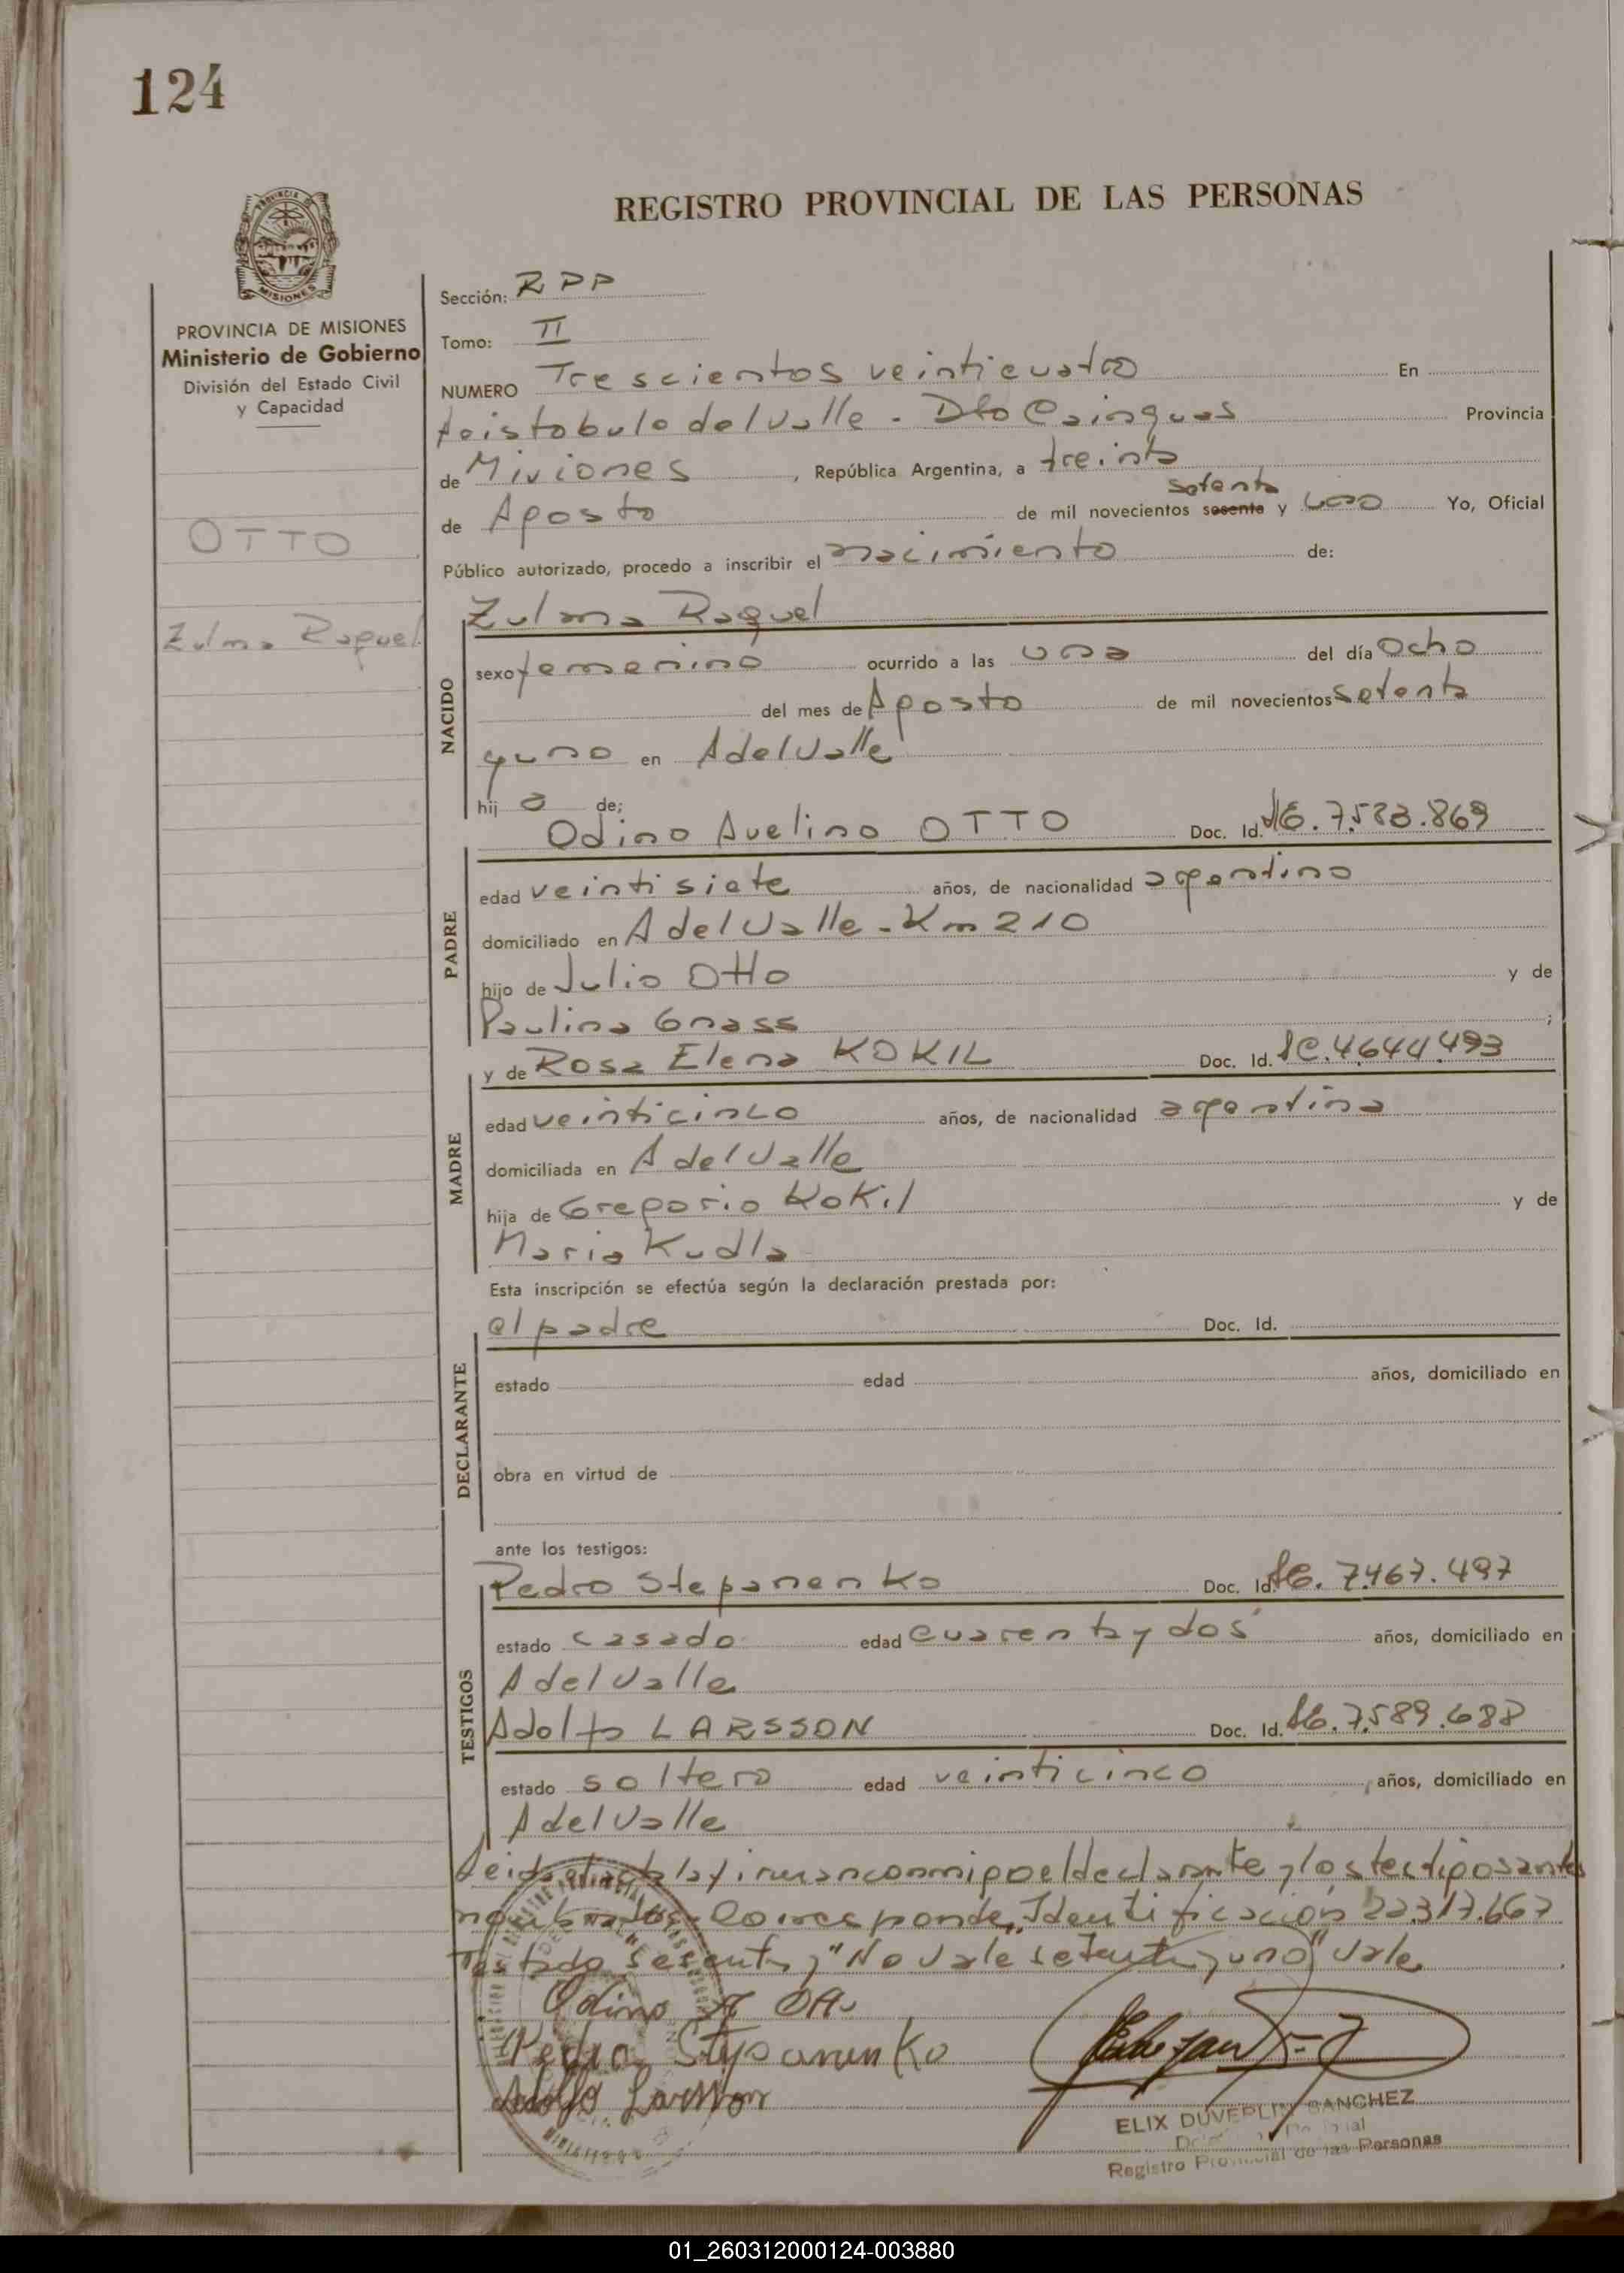 124
REGISTRO PROVINCIAL DE LAS PERSONAS
PROVINCIA DE MISIONES
Ministerio de Gobierno
División del Estado Civil
y Capacidad
OTTO
Zulma Raquel
Sección: RPP
Tomo: II
NUMERO Trescientos veinticuatro En
Aristobulo del Valle - Dto Cainguas Provincia
de Misiones, República Argentina, a treinta
setenta
de Agosto de mil novecientos sesenta y uno Yo, Oficial
Público autorizado, procedo a inscribir el nacimiento de:
NACIDO
Zulma Raquel
sexo femenino ocurrido a las una del día ocho
del mes de Agosto de mil novecientos setenta
y uno en A del Valle
hij a de:
PADRE
Odino Avelino OTTO Doc. Id. 7.583.869
edad veintisiete años, de nacionalidad argentino
domiciliado en A del Valle - Km 210
hijo de Julio Otto y de
Paulina Gnass ;
MADRE
y de Rosa Elena KOKIL Doc. Id. LC. 4.644.493
edad veinticinco años, de nacionalidad argentina
domiciliada en A del Valle
hija de Gregorio Kokil y de
Maria Kudla
Esta inscripción se efectúa según la declaración prestada por:
DECLARANTE
el padre Doc. Id.
estado edad años, domiciliado en
obra en virtud de
ante los testigos:
TESTIGOS
Pedro Stepanenko Doc. Id. 7.467.497
estado casado edad cuarenta y dos años, domiciliado en
A del Valle
Adolfo LARSSON Doc. Id. 7.589.688
estado soltero edad veinticinco, años, domiciliado en
A del Valle
Leida el acta la firman conmigo el declarante y los testigos antes
nombrados. Corresponde Identificación 22.317.667
Testado "sesenta y" No Vale setenta y uno" Vale
Odino A Otto
Pedro Stepanenko
Adolfo Larsson
ELIX DUVERLIN SANCHEZ
Registro Provincial de las Personas
01_260312000124-003880